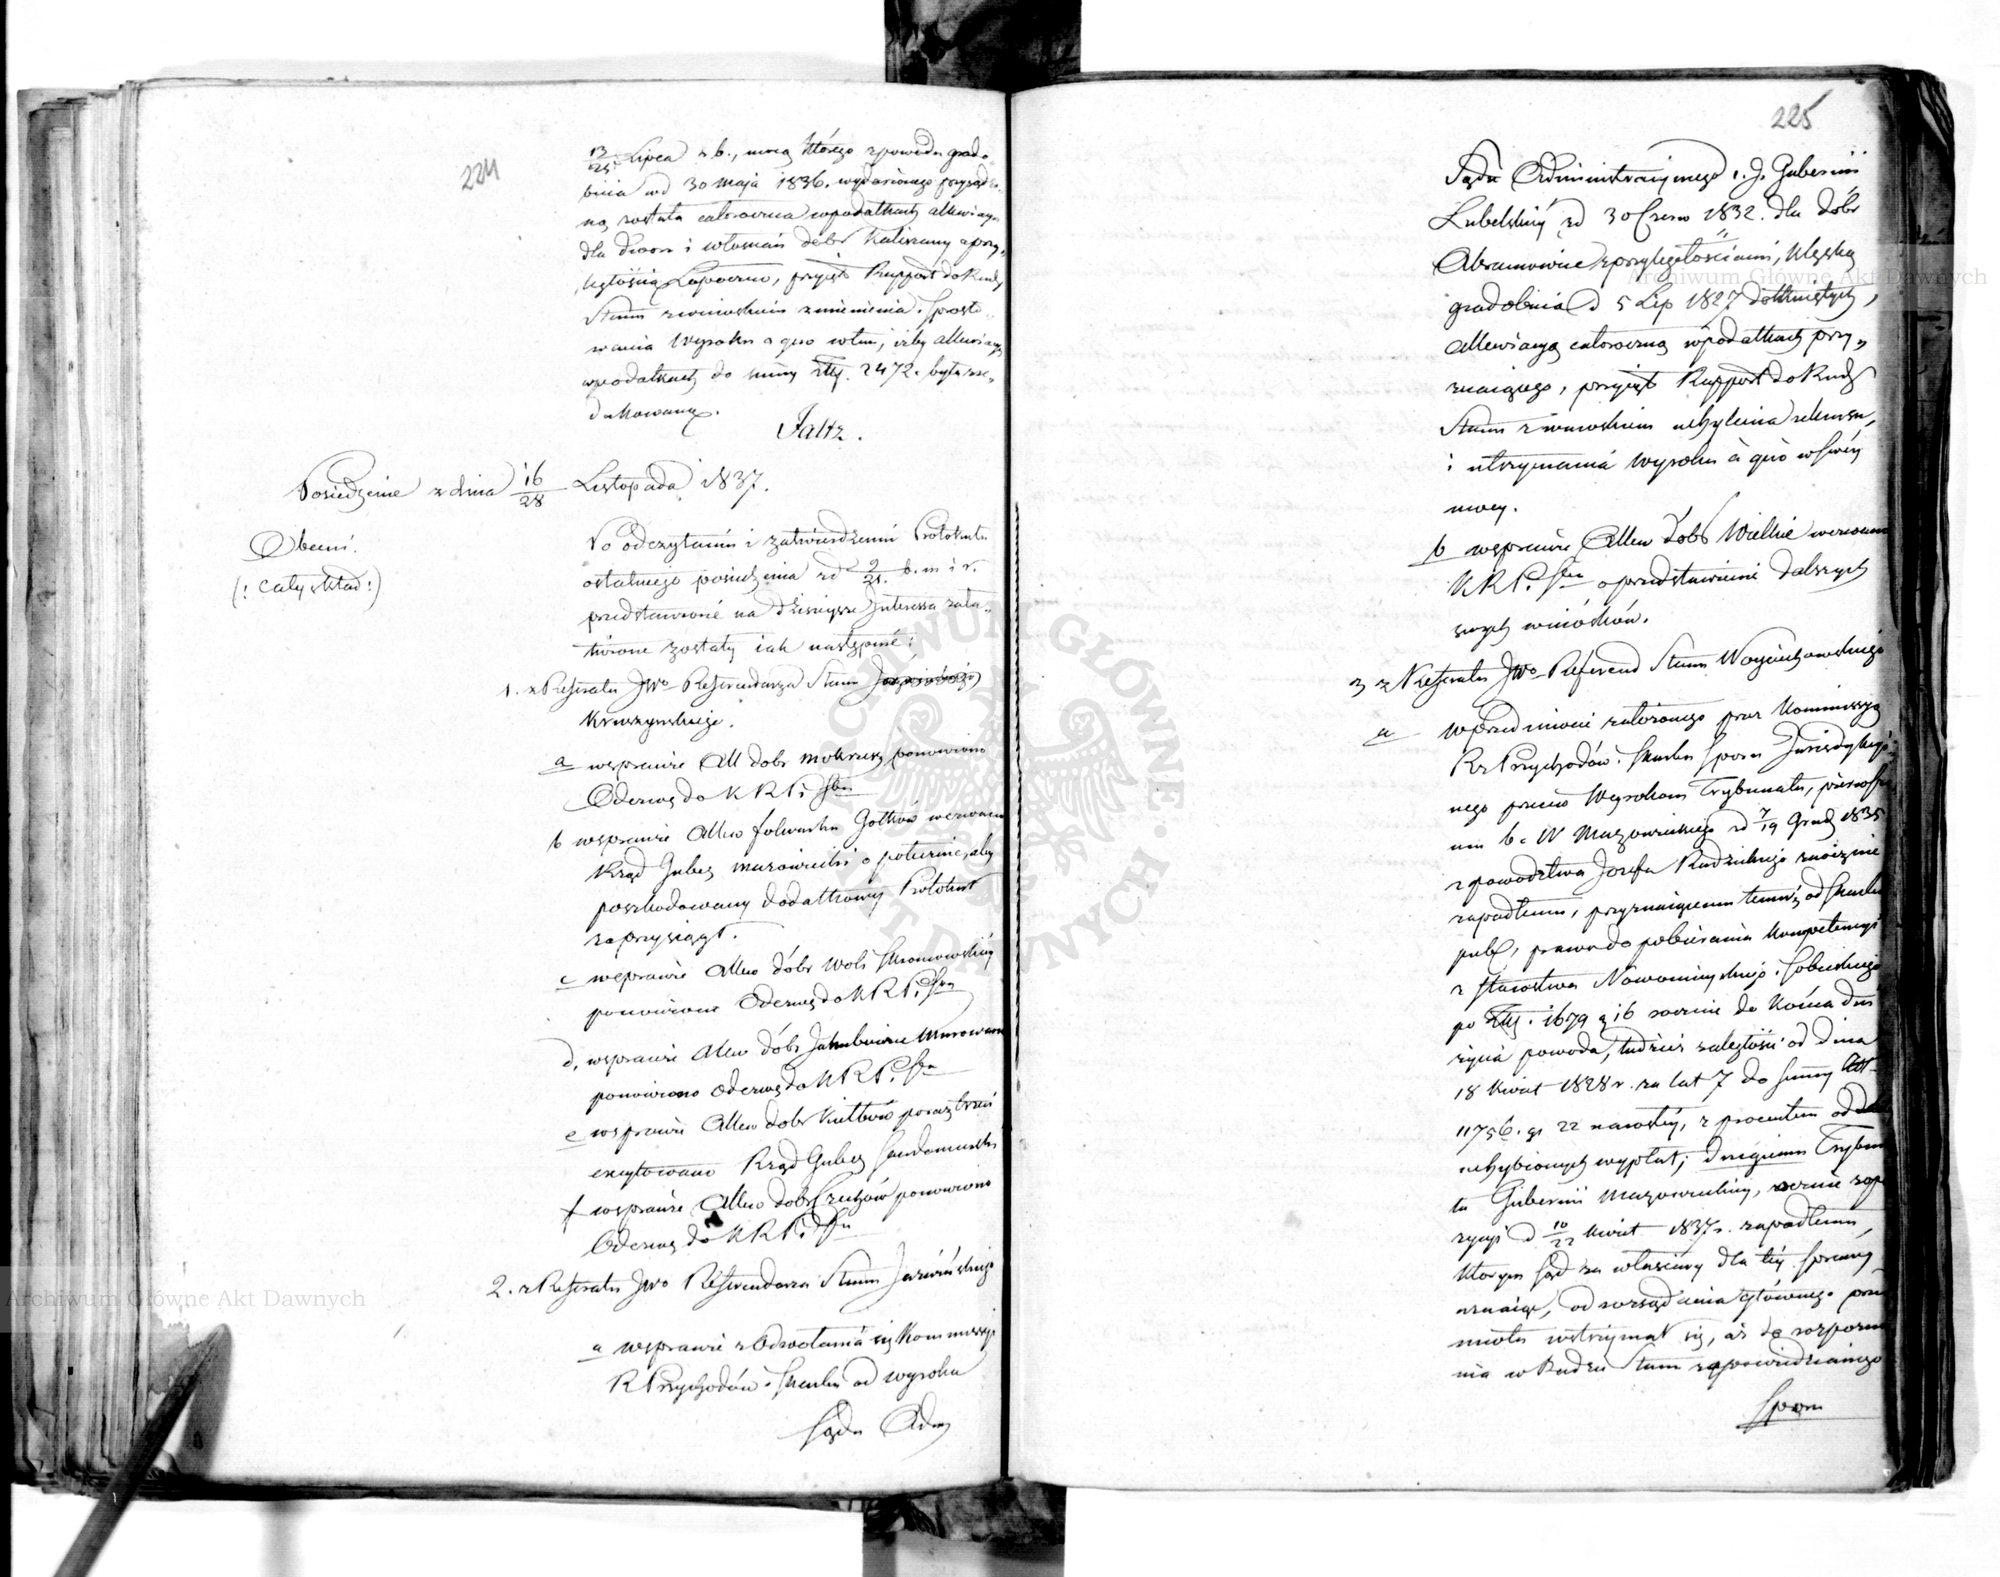 224
13/25 Lipca r. b., mocą którego z powodu grado„
bicia pod 30 Maja 1836. wydarzonego przysądzo„
ną została całoroczna w podatkach allewiacya
dla dworu i włościan dóbr Kaliszany z przy„
ległością Łopoczno, przyjęto Rapport do Rady
Stanu z wnioskiem zmienienia i sprosto„
wania Wyroku a quo w tém, iżby allewiacya
w podatkach do summy Złp. 2472. była zre„
dukowaną.
Faltz.
Posiedzenie z dnia 16/28 Listopada 1837.
Obecni.
(: cały skład :)
Po odczytaniu i zatwierdzeniu Protokułu
ostatniego posiedzenia z d 9/21. b. m i r.
przedstawione na dzisiejsze Interessa zała„
twione zostały iak następnie:
1. z Referatu JWo Referendarza Stanu
Kruszyńskiego.
a w sprawie All dobr Mokrusz ponowiono
Odezwę do K R P. i Sbu
b w sprawie Allew folwarku Gołków wezwano
Rząd Guber Mazowiecki o polecenie, aby
poszkodowany dodatkowy Protokuł
zaprzysiągł.
c w sprawie Allew dóbr Woli Skromowskiey
ponowiono Odezwę do K R P. i Sbu
d, w sprawie Alew dóbr Jakubowice Murowane
ponowiono Odezwę do K R P. i Sbu
e w sprawie Allew dobr Kiełbów poraz trzeci
excytowano Rząd Guber Sandomierski
f w sprawie Allew dobr Czechów ponowiono
Odezwę do K R P. i Sbu
2. z Referatu JWo Referendarza Stanu Jarzwińskiego
a w sprawie z Odwołania się Kommissyi
R Przychodów i Skarbu od wyroku
Sądu Adm
225
Sądu Administracyinego i. J. Gubernii
Lubelskiey zd 30 Czerw 1832. dla dóbr
Abramowice z przyległościami, klęską
gradobicia d 5 Lip 1827 dotkniętych,
allewiacyą całoroczną w podatkach przy„
znaiącego, przyjęto Rapport do Rady
Stanu z wnioskiem uchylenia rekursu,
i utrzymania wyroku à quo w swéy
mocy.
b w sprawie Allew dobr Wielkie wezwano
K R P. i Sbu o przedstawienie dalszych
swych wniosków.
3 z Referatu JWo Referend Stanu Woyciechowskiego
a w przedmiocie założonego przez Kommissyą
Rz Przychodów i Skarbu Sporu Jurisdykcyi„
nego przeciw Wyrokom Trybunału, pierwsze„
mu b. W. Mazowieckiego zd 7/19 Grud 1835
z powodztwa Jozefa Radzickiego zaocznie
zapadłemu, przyznaiącemu temuż od Skarbu
publ, prawo do pobierania kompetencyi
z Starostwa Nowomieyskiego i Sobieskiego
po Złp. 1679 g 16 rocznie do końca dni
życia powoda, tudzież zaległość od dnia
18 Kwiet 1828 r. za lat 7 do summy Złt
11756. gr 22 narosłéy, z procentem od dat
uchybionych wypłat; drugiemu Trybuna
łu Gubernii Mazowieckiéy, w
d 10/22 Kwiet 1837 r. zapadłemu,
którym Sąd za właściwy dla téy sprawy
uznaiąc, od rozsądzenia głównego przed
miotu wstrzymał się, aż do rozpozna
nia w Radzie Stanu zapowiedzianego
Sporu
Archiwum Główne Akt Dawnych
Archiwum Główne Akt Dawnych
ARCHIWUM GŁÓWNE AKT DAWNYCH